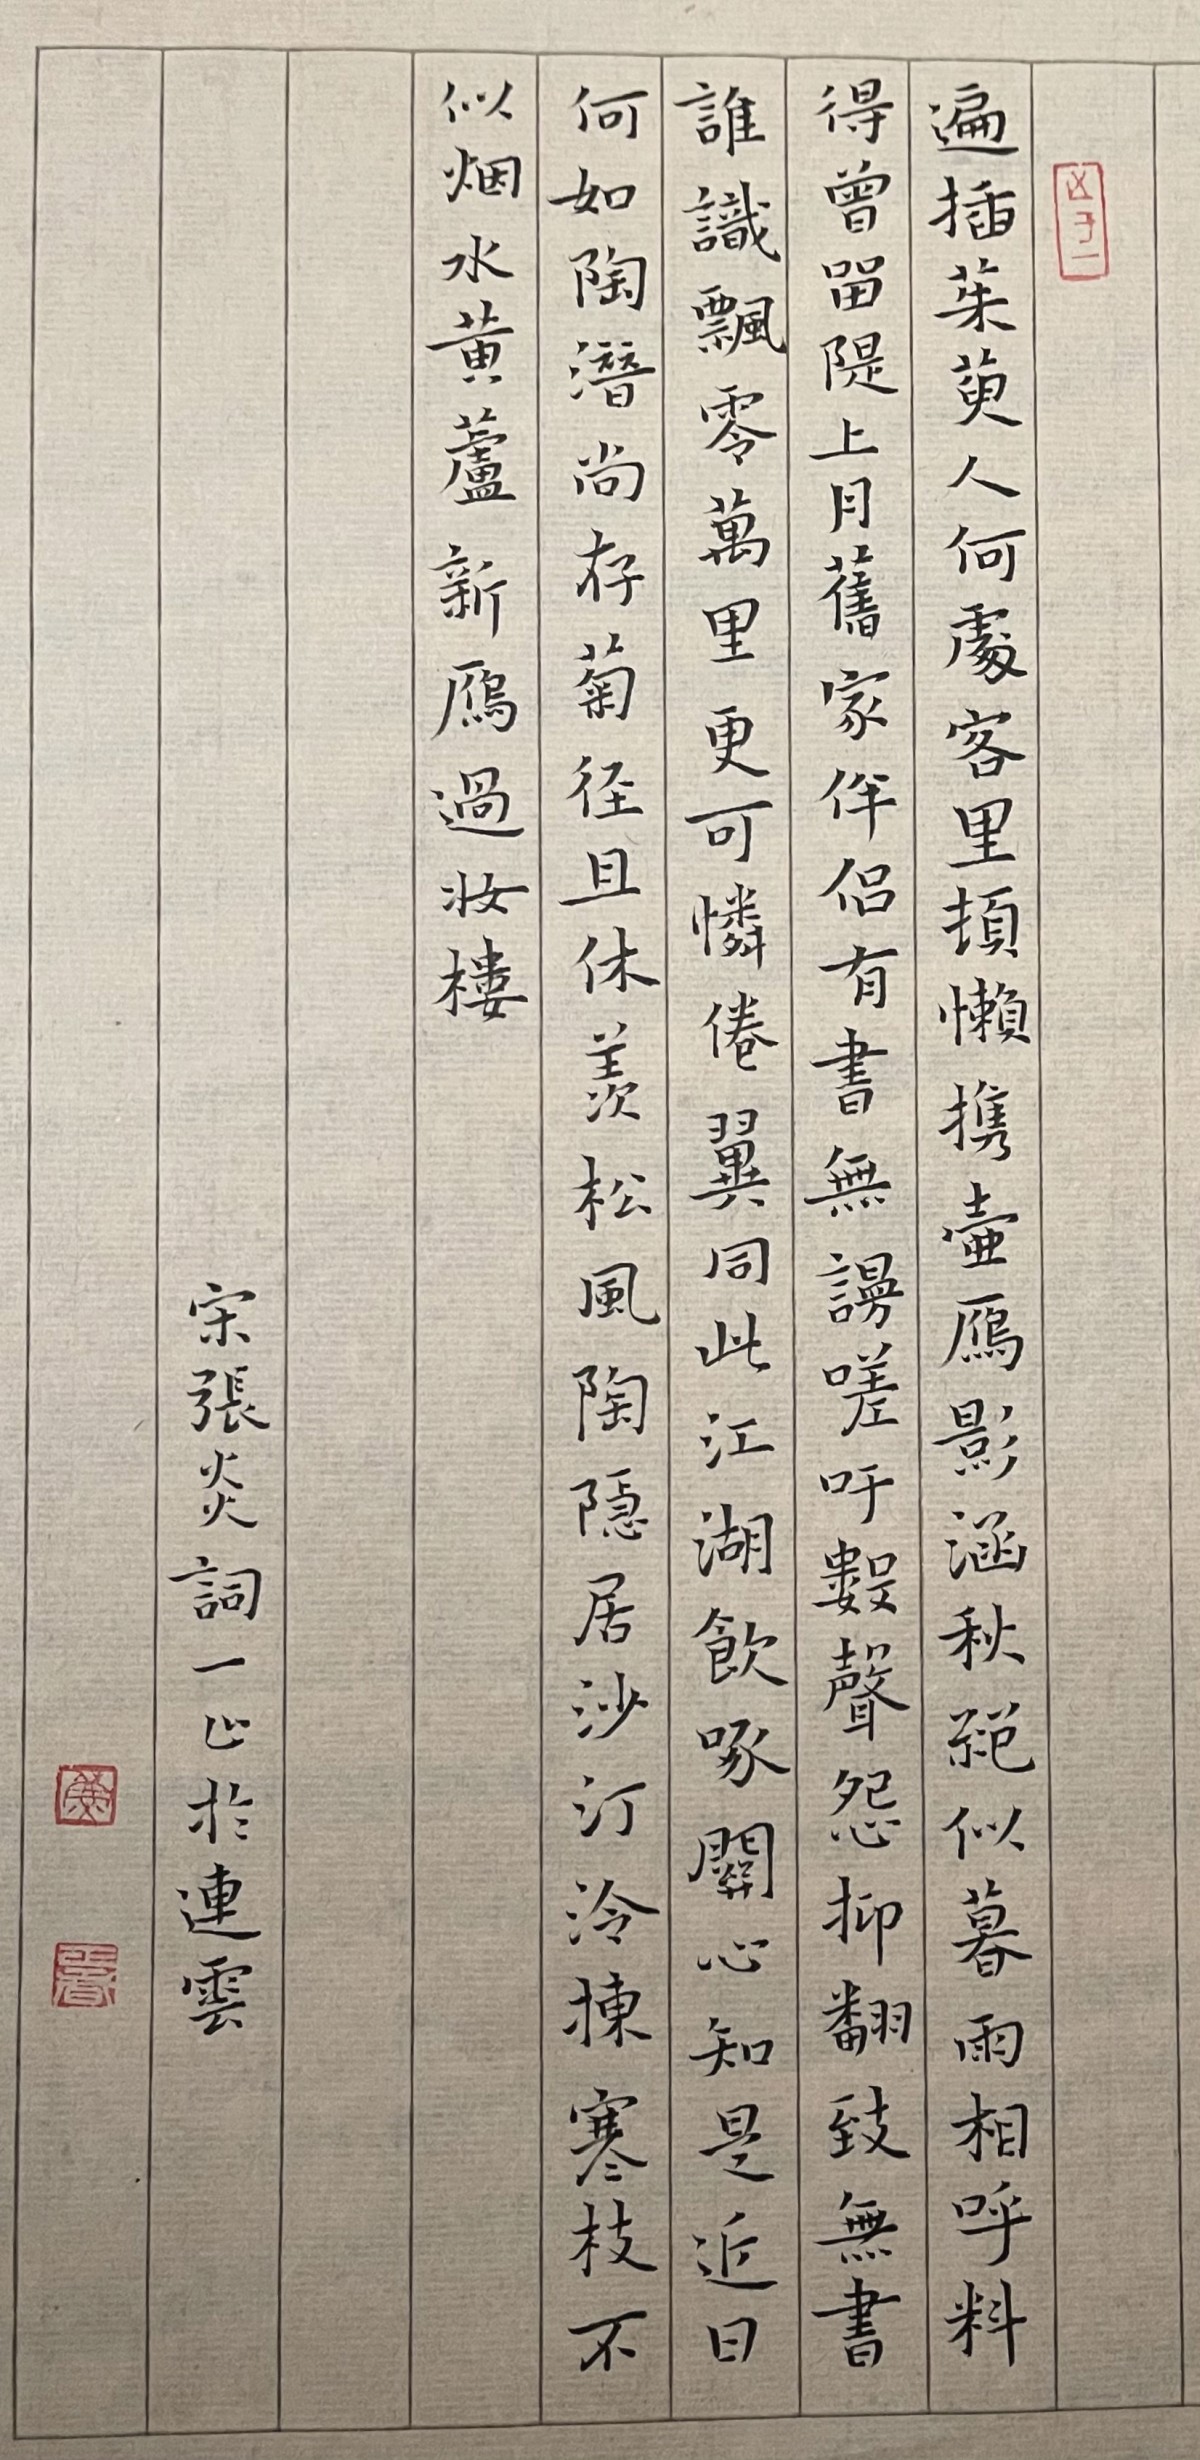 遍插茱萸人何處客里頓懶携壺鴈影涵秋絕似暮雨相呼料
得曾留隄上月舊家伴侶有書無謾嗟吁數聲怨抑翻致無書
誰識飄零萬里更可憐倦翼同此江湖飲啄關心知是近日
何如陶潛尚存菊徑且休羨松風陶隱居沙汀冷揀寒枝不
似烟水黄蘆新鴈過妝樓
宋張炎詞一止於連雲